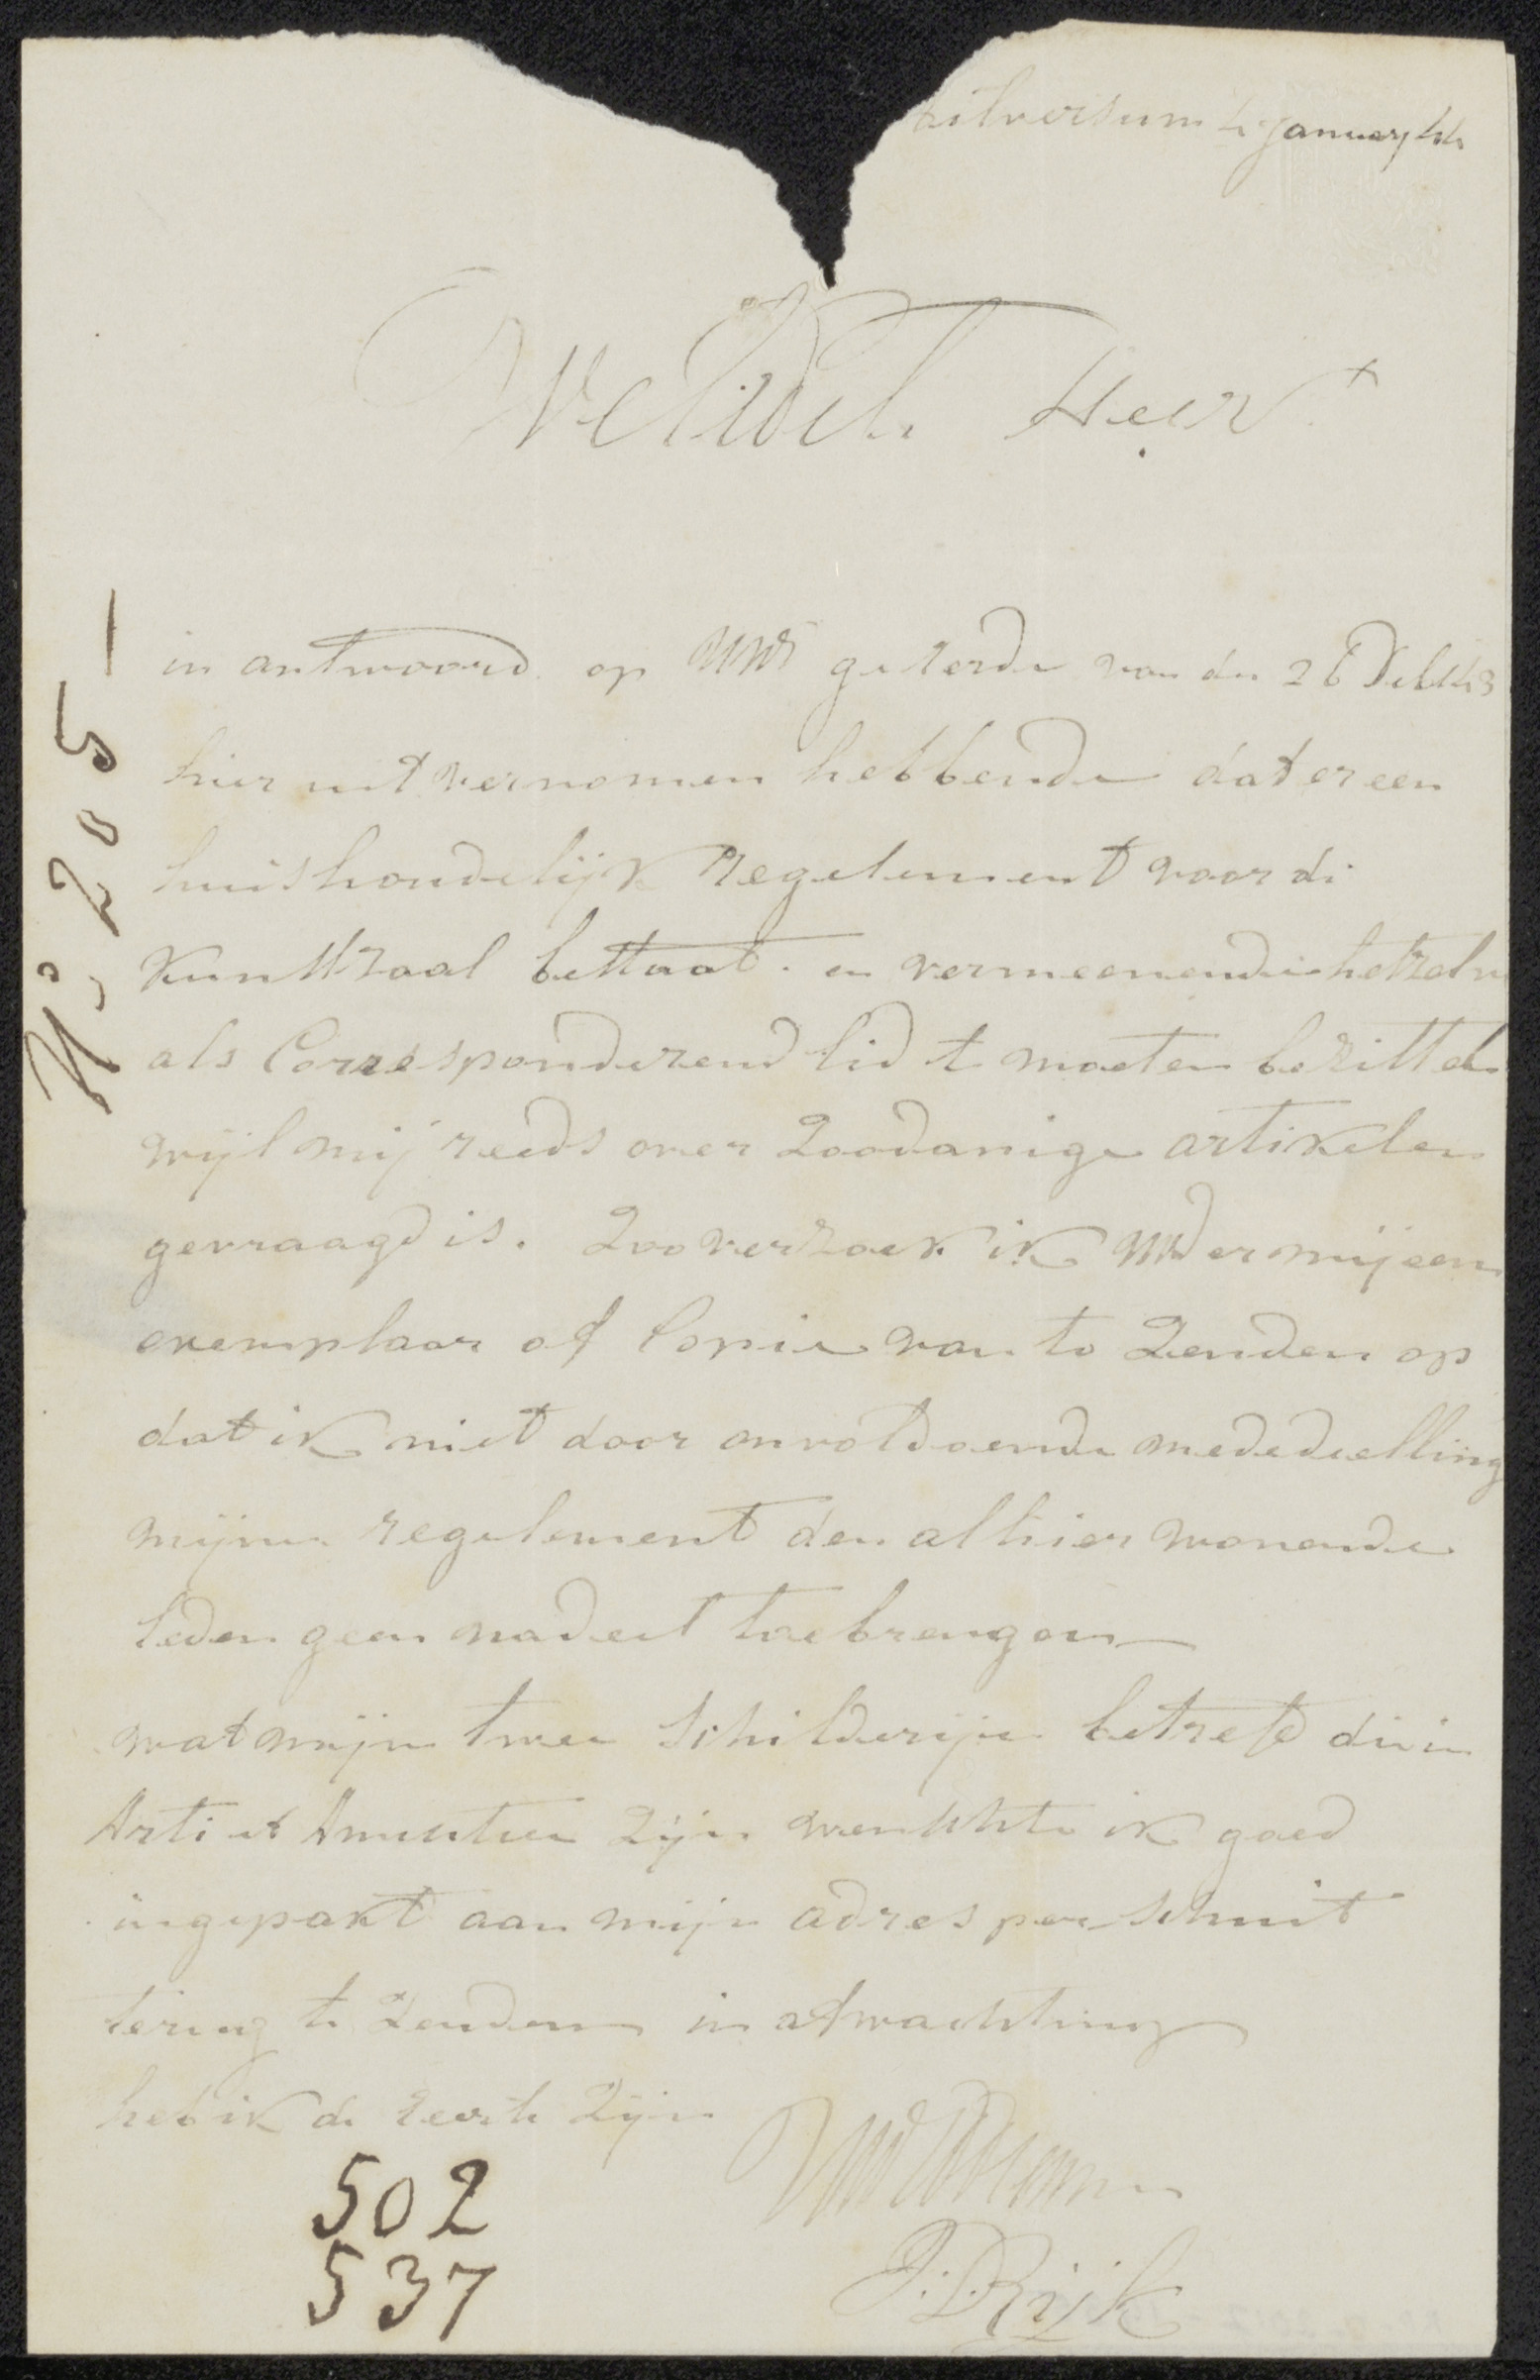 Hilversum 4 January 44
WelEdele Heer
in antwoord op UWE geëerde van den 26 Dec 1843
hier uit vernomen hebbende dat er een
huishoudelijk regelement voor de
Kunstzaal bestaat. en vermeenende hetzelve
als Corresponderend lid te moeten bezitten
wijl mij reeds over Zoodanige artikelen
gevraagd is. Zoo verzoek ik UWE er mij een
exemplaar of Copie van te Zenden op
dat ik niet door onvoldoende mededeelling
mijner regelement den alhier wonende
leden geen nadeel toebrengen
wat mijn twee Schilderijen betreft die in
Arti et Amicitiae Zijn wenschte ik goed
ingepakt aan mijn adres per schuit
terug te Zenden in afwachting
heb ik de eer te Zijn
J: D: Rijk
502
537
No, 205 -